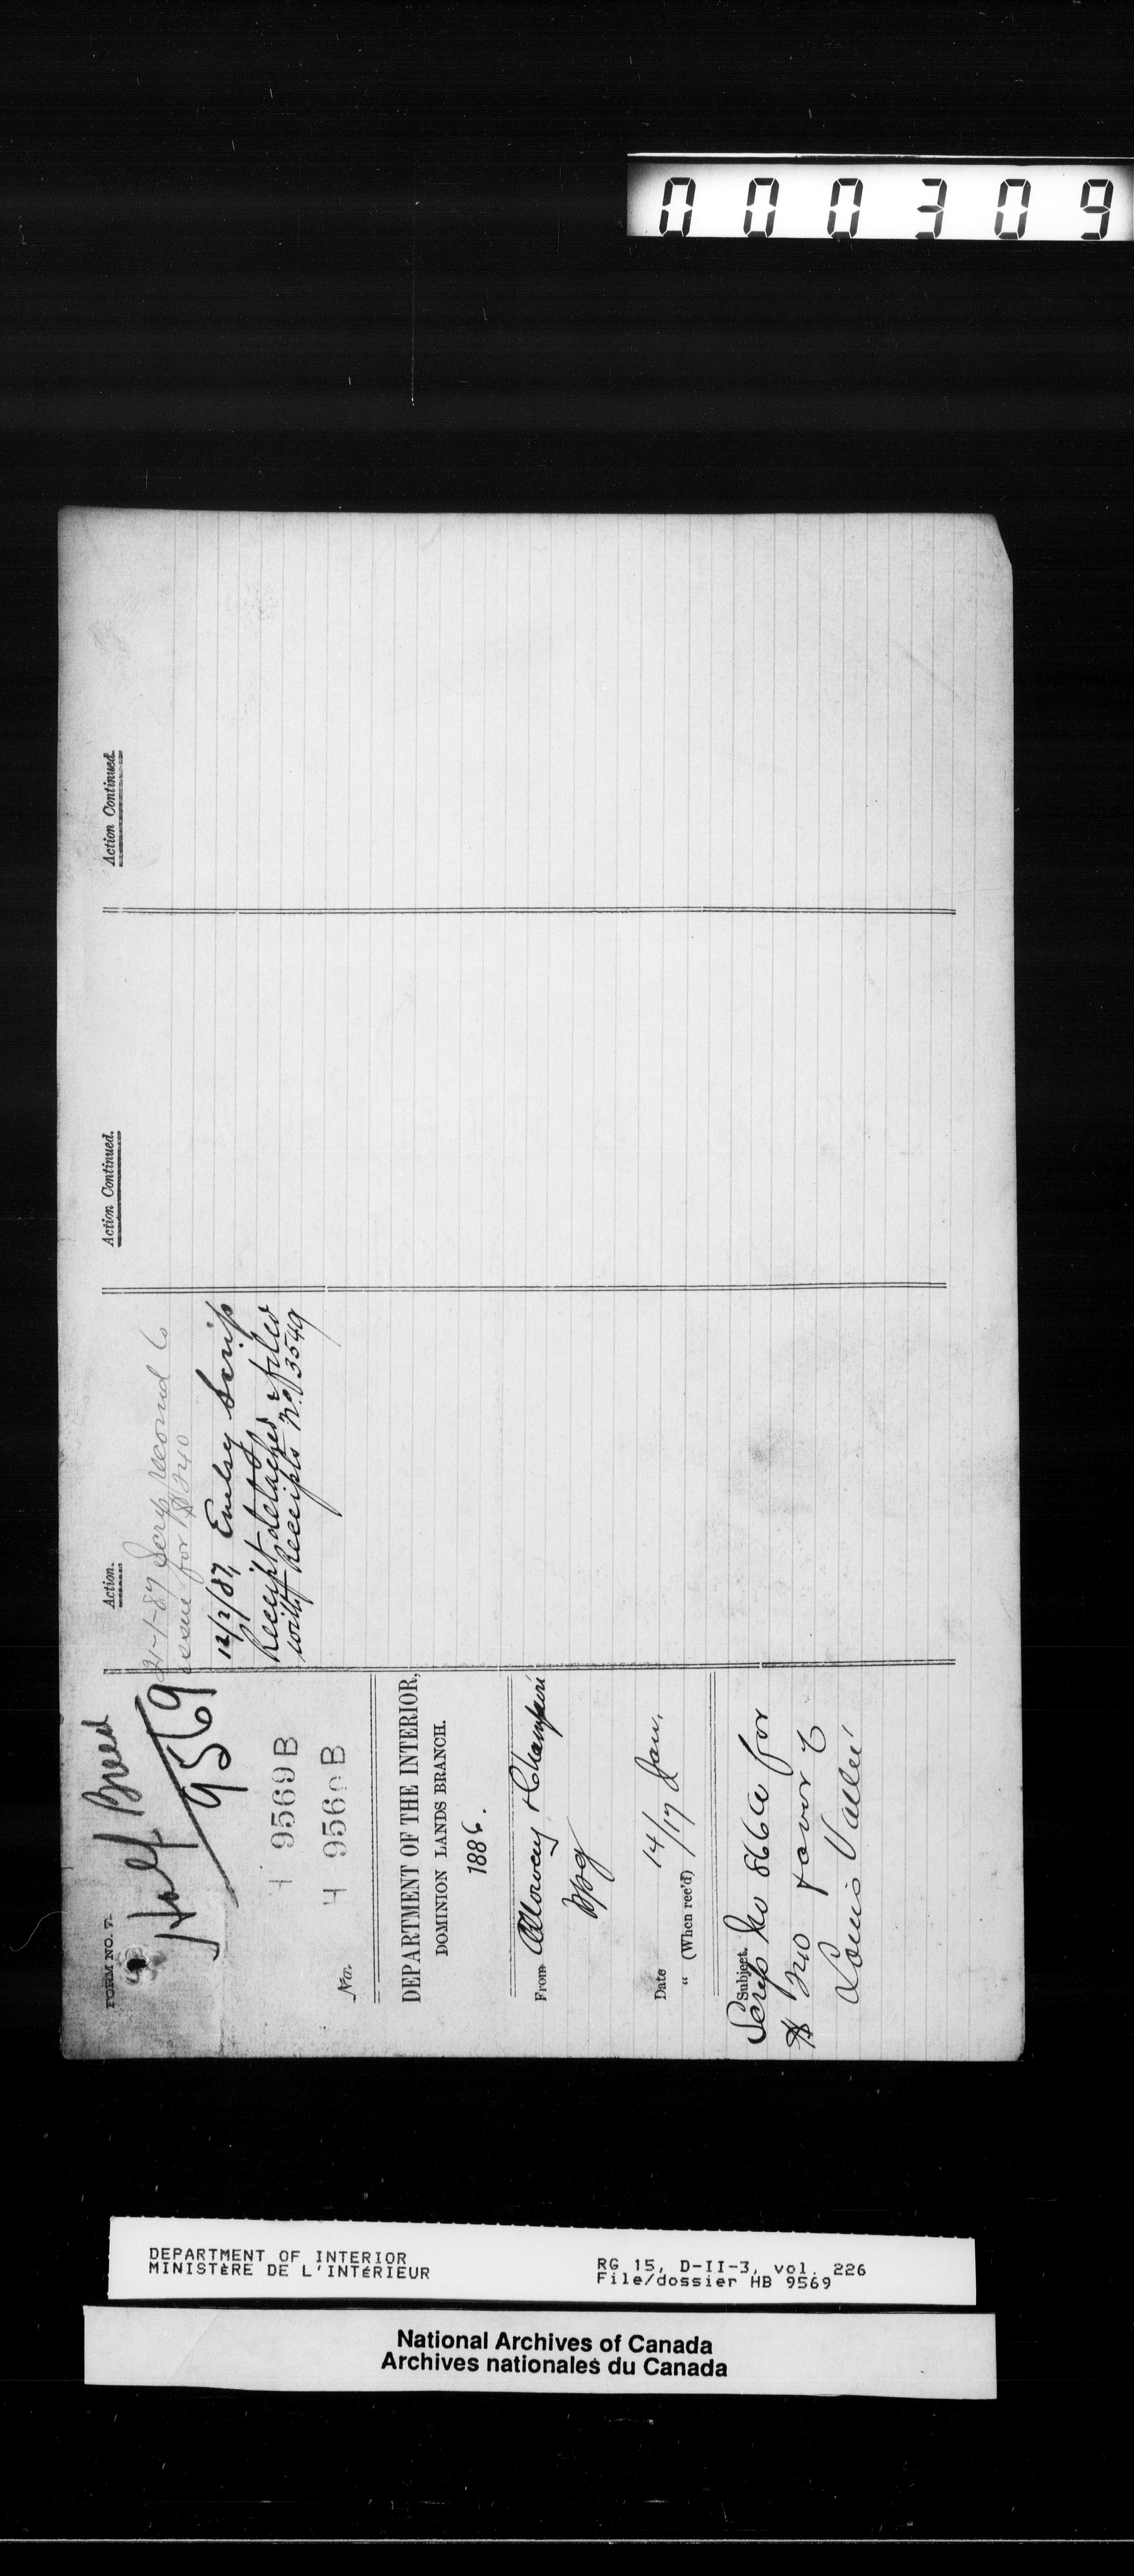 000309
FORM NO. 7.
Half Breed
9569
4 9569 B
4 9569 B
No.
DEPARTMENT OF THE INTERIOR,
DOMINION LANDS BRANCH.
1886.
From Alloway & Champion
Wpg
Date 14/ Jan.
" (When rec'd) /17
Subject.
Scrip No 866 for
$240 favor of
Louis Vallée
Action.
21-1-87 Scrip record to
issue for $240
12/2/87, Emily Scrip
Receipt detached & filed
with Receipts No 3549
Action Continued.
Action Continued.
DEPARTMENT OF INTERIOR
MINISTÈRE DE L'INTÉRIEUR
RG 15, D-II-3, vol. 226
File/dossier HB 9569
National Archives of Canada
Archives nationales du Canada